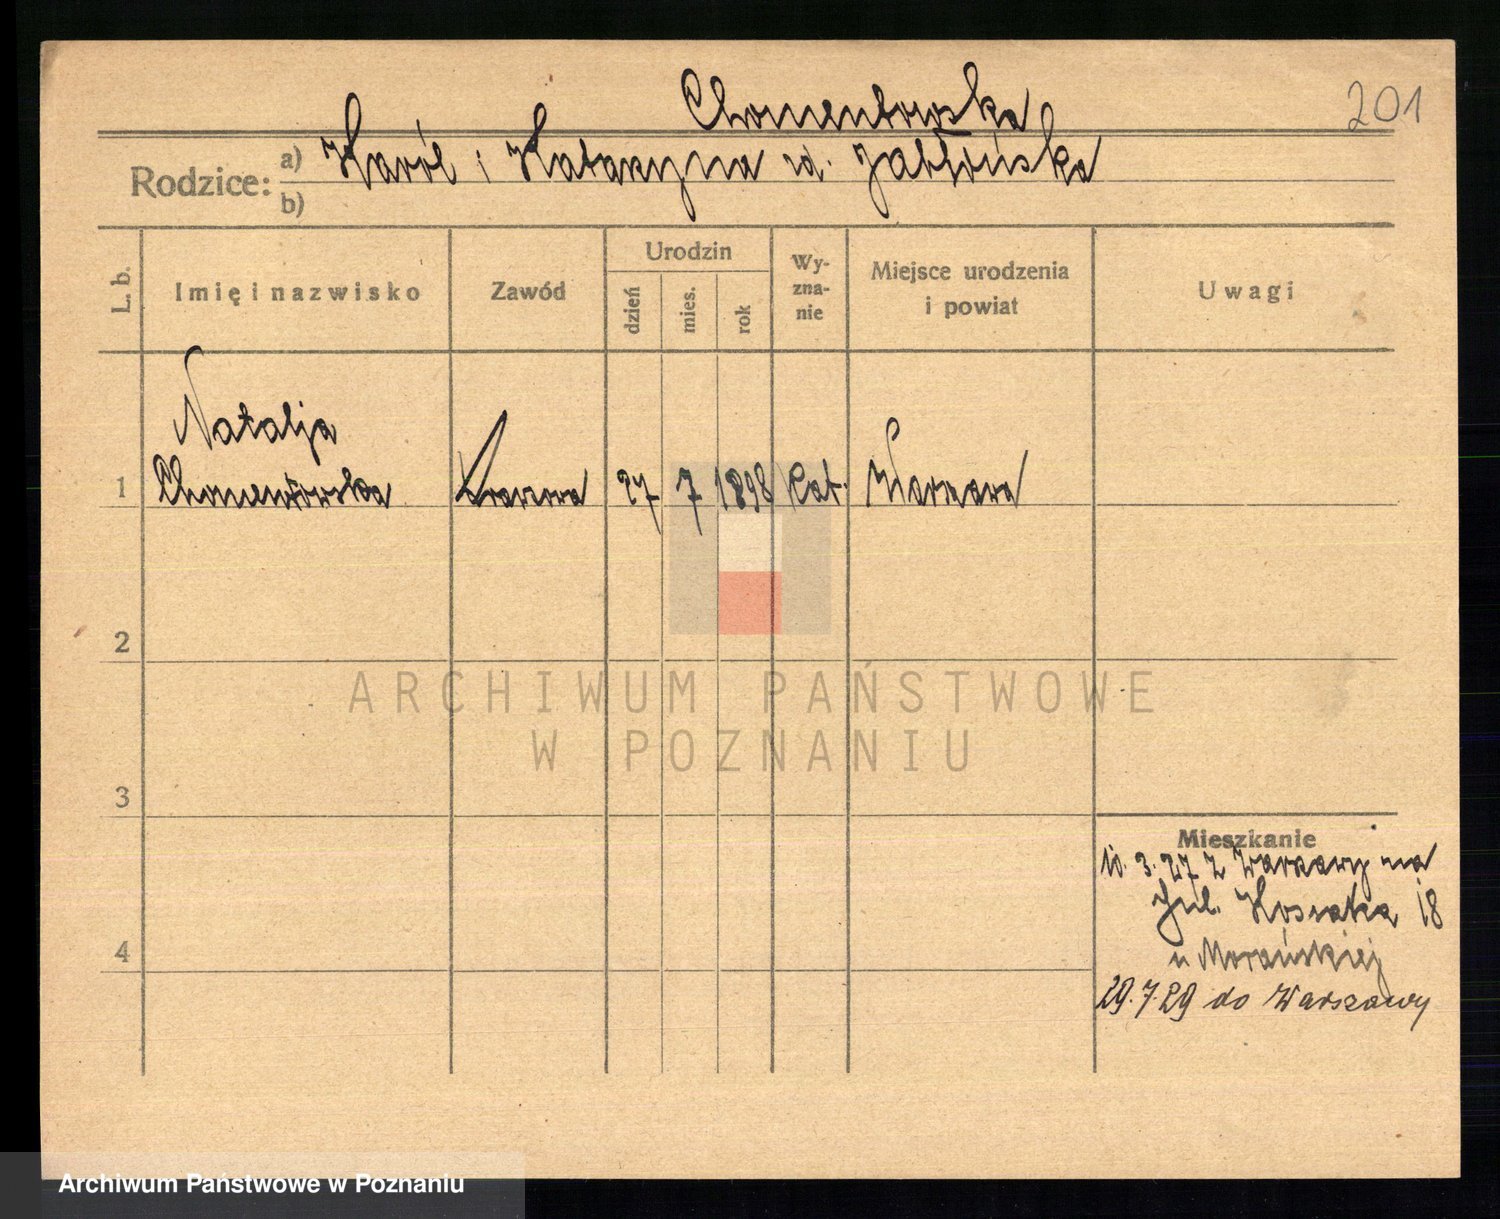 201
Chomentowska
Rodzice:
a) Karól i Katarzyna rd. Jabłońska
b)
L. b.
Imię i nazwisko
Zawód
Urodzin
dzień
mies.
rok
Wy-
zna-
nie
Miejsce urodzenia
i powiat
Uwagi
Natalja
1 Chomentowska 27 7 1898 kat. Warszawa
2
ARCHIWUM PAŃSTWOWE
W POZNANIU
3
Mieszkanie
10. 3. 27 z Warszawy na
Jul. Kossaka 18
u
4
29.7.29 do Warszawy
Archiwum Państwowe w Poznaniu